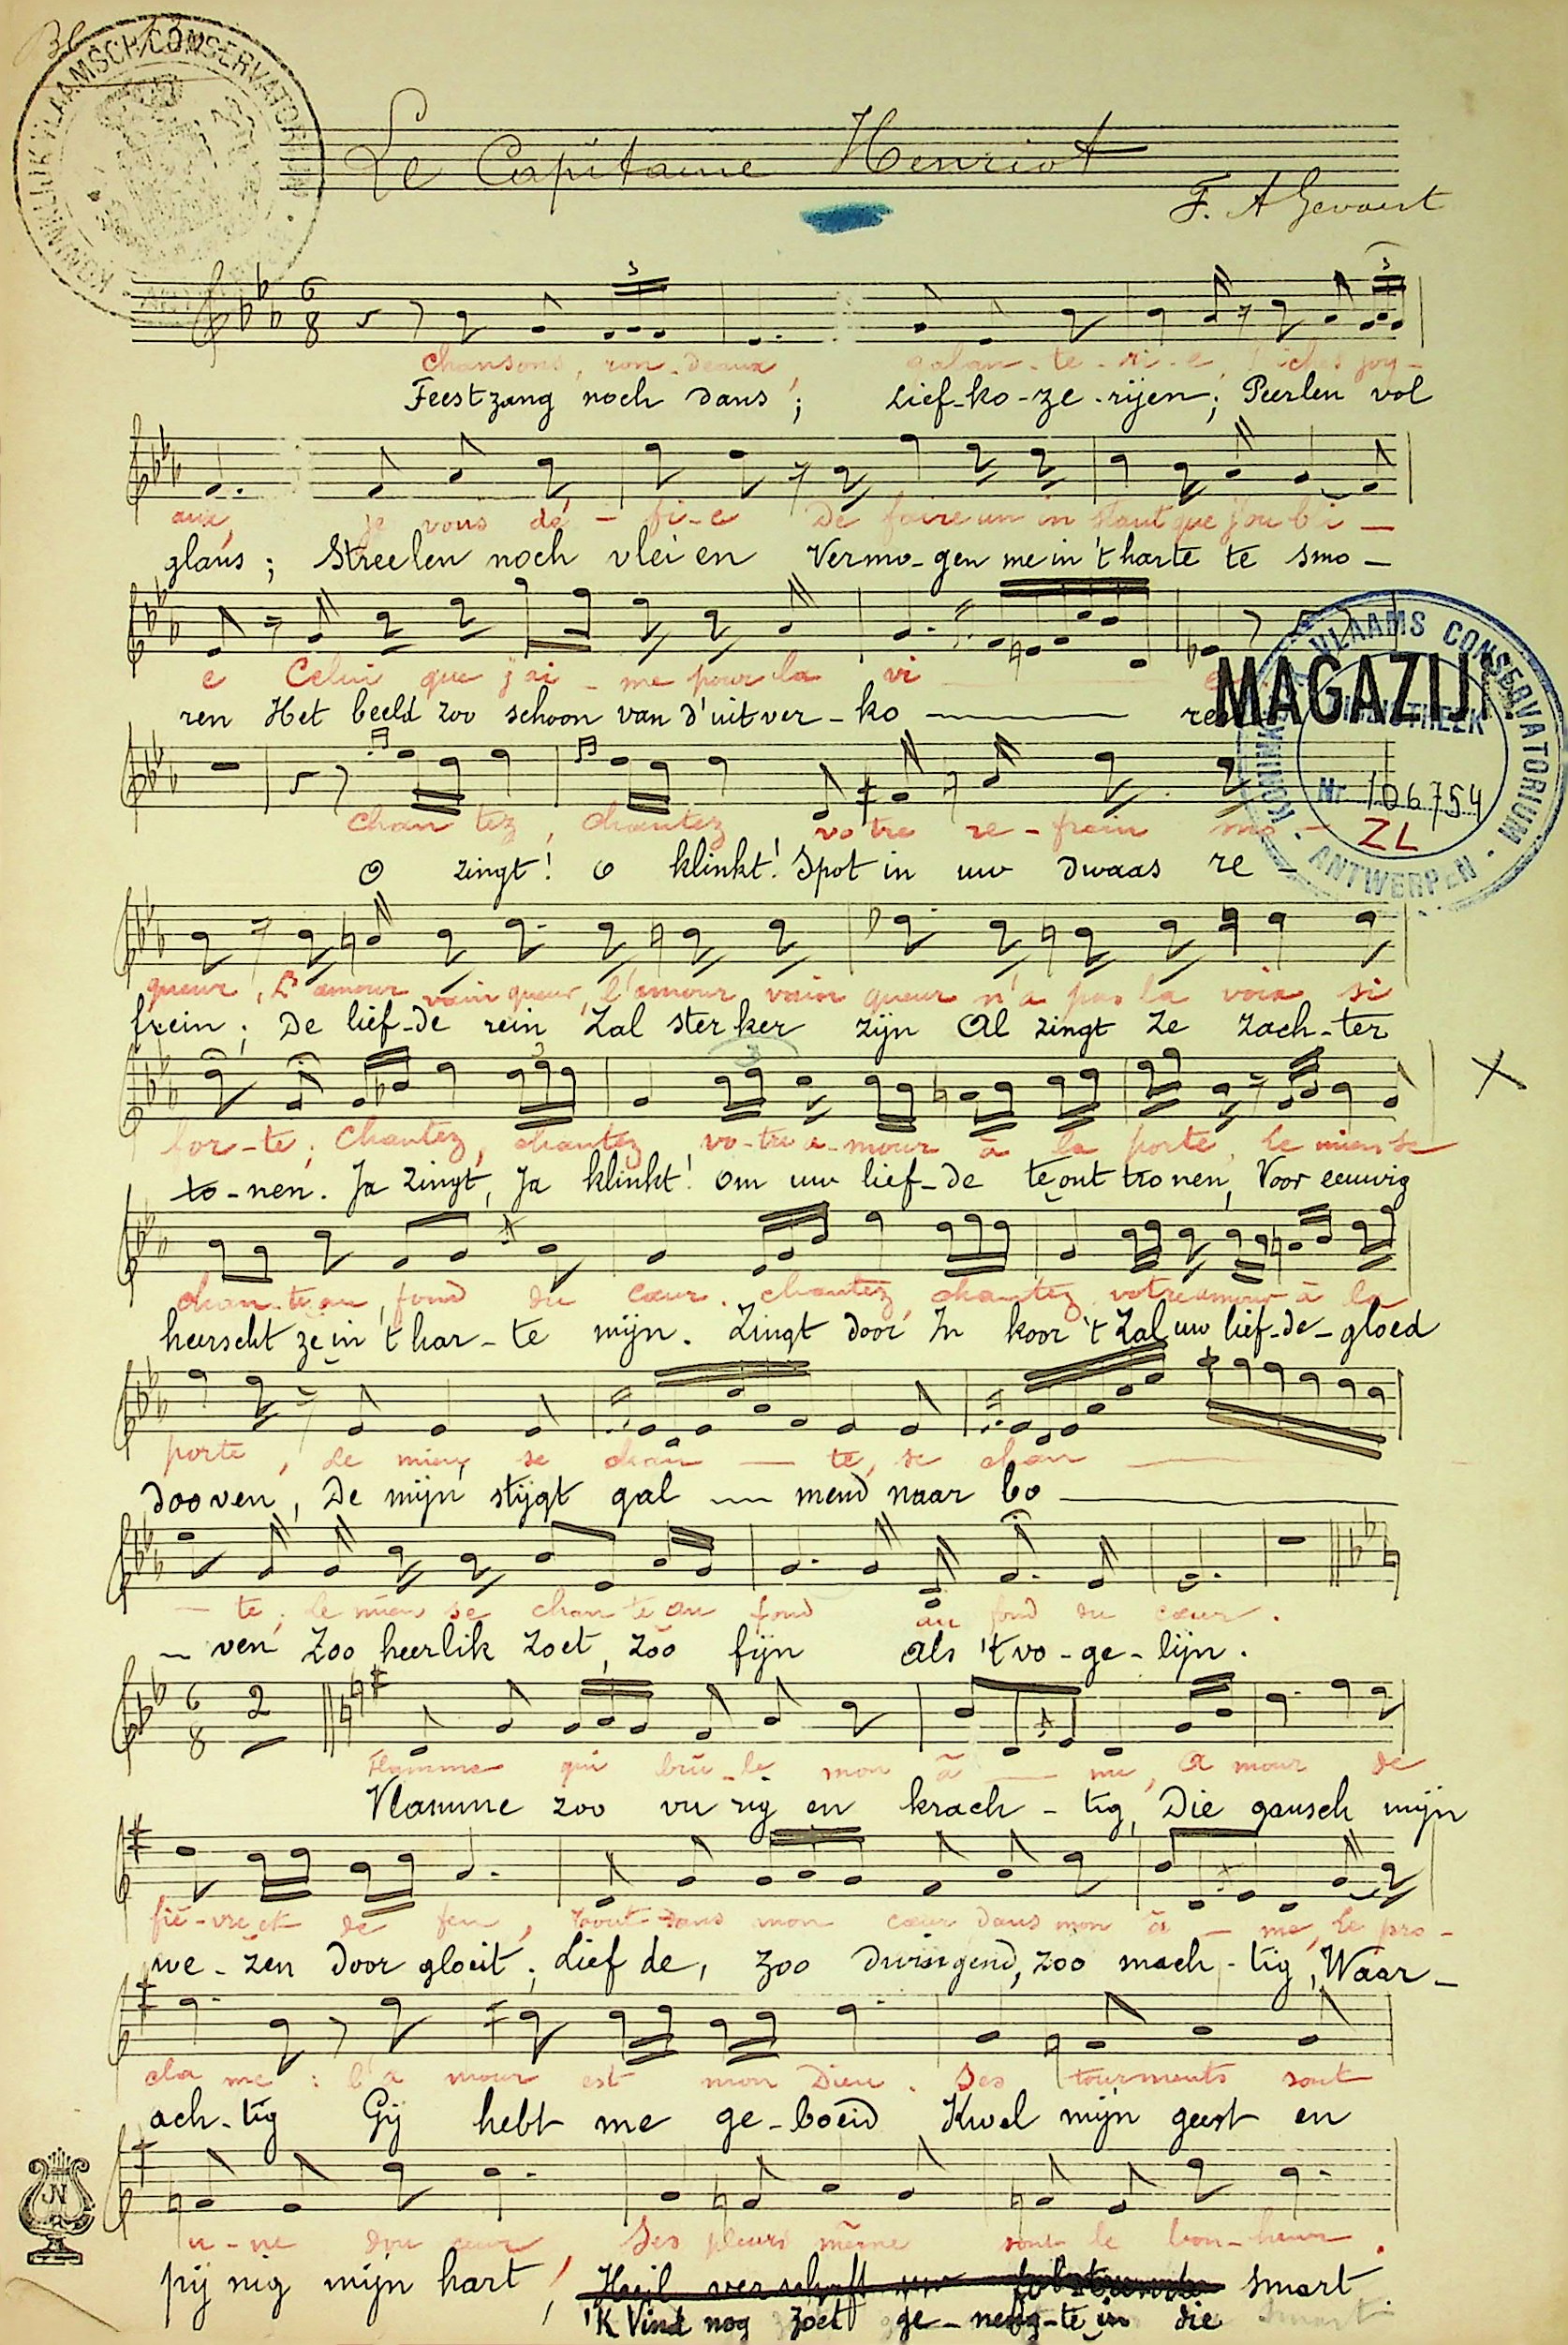 KONINKLIJK VLAAMSCH CONSERVATORIUM
Le Capitaine Henriot
F. A Gevaert
chansons, ron-deaux, galan-te-ri-e, joy-
Feestzang noch dans; Lief-ko-ze-rijen; Peerlen vol
aux, je vous dé-fi-e De faire un instant que j'oubli-
glans; Streelen noch vleien Vermo-gen me in 't harte te smo-
e Celui que j'ai-me pour la vi
ren Het beeld zoo schoon van d'uitver-ko ren
KONINKLIJK VLAAMS CONSERVATORIUM
MAGAZIJN
Nr 106754
ZL
ANTWERPEN
chan tez, chantez votre re-frein mo-
O zingt! O klinkt! Spot in uw dwaas re-
queur, L'amour vain queur, l'amour vain queur n'a pas la voix si
frein; De lief-de rein Zal sterker zijn Al zingt ze zach-ter
for-te; Chantez, chantez vo-tre a-mour à la porte, le mien se
to-nen. Ja zingt, Ja klinkt! om uw lief-de te ont tronen, Voor eeuwig
chan-te au fond du cœur. chantez, chantez votre amour à la
heerscht ze in 't har-te mijn. Zingt door In koor 't Zal uw lief-de-gloed
porte, le mien se chan-te, se chan
dooven, De mijn stijgt gal mend naar bo
- te; le mien se chan te au fond au fond du cœur.
- ven Zoo heerlik zoet, zoo fijn als 't vo-ge-lijn.
Flamme qui brû-le mon â-me, A mour de
Vlamme zoo vu rig en krach-tig, Die gansch mijn
fiè-vre et de feu, tout dans mon cœur dans mon â-me, le pro-
we-zen door gloeit; Lief de, zoo dwingend, zoo mach-tig, Waar-
cla me: l'a mour est mon Dieu. Ses tourments sont
ach-tig Gij hebt me ge-boeid Kwel mijn geest en
u-ne dou ceur, Ses pleurs même sont le bon-heur.
JN
pij nig mijn hart, Heil verschaft uw smart.
'K Vind nog zoet ge-neug-te in die smart